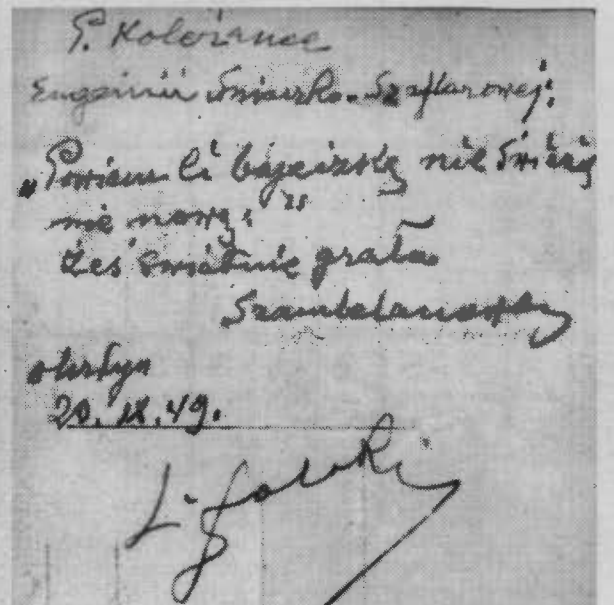 P. Koleżance
Eugenii Śnieżko-Szaflarowej:
"Powiem Ci bajeczkę nie świeżą
nie nową."
Żeś świetnie grała
Szambelanową
Olsztyn
20. IX. 49.
L.